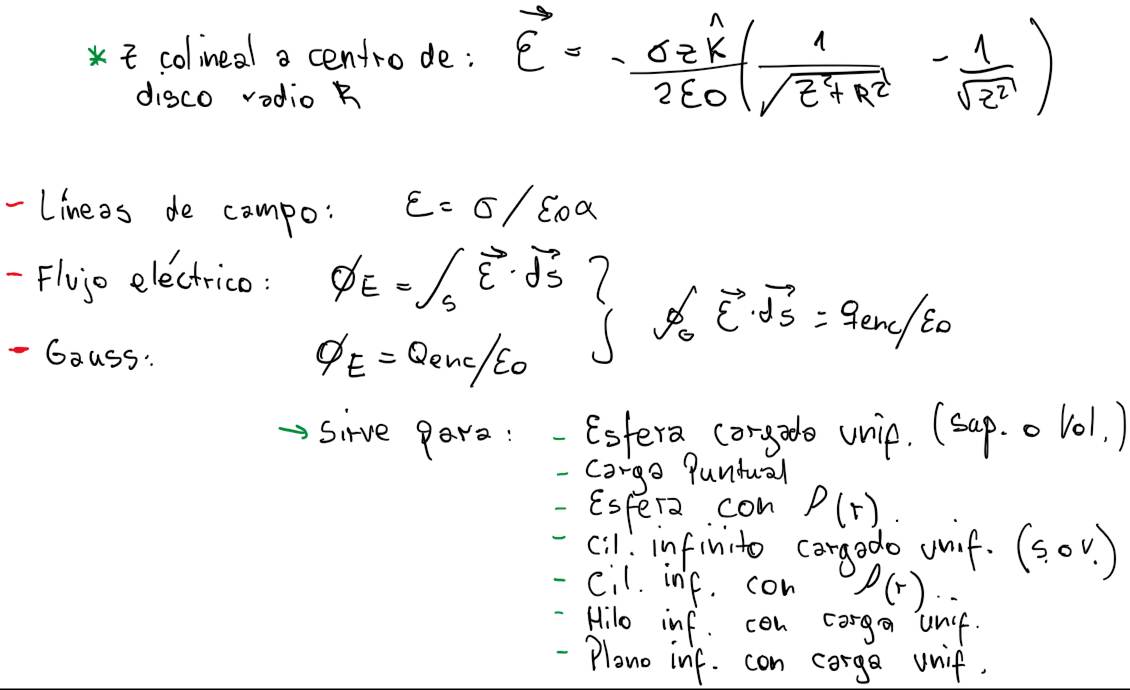 * z colineal a centro de: $\vec{E} = -\frac{\sigma z \hat{k}}{2\varepsilon_0}\left(\frac{1}{\sqrt{z^2+R^2}} - \frac{1}{\sqrt{z^2}}\right)$
disco radio R
- Líneas de campo: E = σ/ε₀α
- Flujo eléctrico: $\phi_E = \int_S \vec{E} \cdot \vec{ds}$ } $\oint_G \vec{E} \cdot \vec{ds} = q_{enc}/\varepsilon_0$
- Gauss: $\phi_E = Q_{enc}/\varepsilon_0$
→ Sirve para: - Esfera cargada unif. (sup. o Vol.)
- Carga Puntual
- Esfera con ρ(r).
- Cil. infinito cargado unif. (s. o v.)
- Cil. inf. con ρ(r)..
- Hilo inf. con carga unif.
- Plano inf. con carga unif.